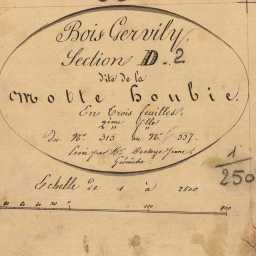 Bois Gervily.
Section D. 2
dite de la
Motte houbie.
En Trois feuilles.
2ème flle
du N° 313 au N° 337.
Levée par Mr
Géomètre
1
250
Echelle de 1 à 2500